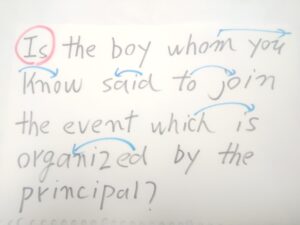 Is the boy whom you
know said to join
the event which is
organized by the
principal?